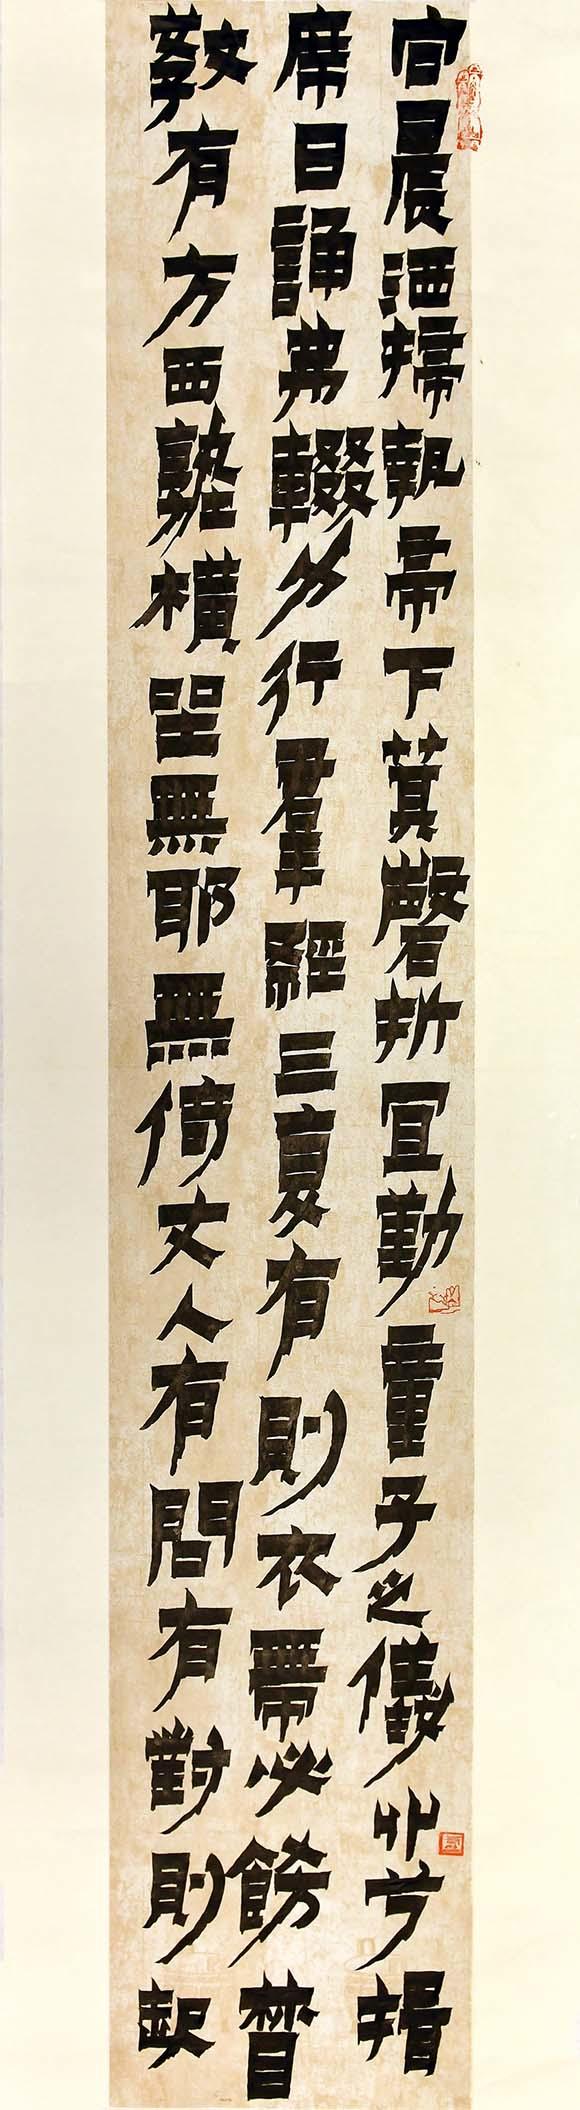 晨洒掃執帚下萁磬折宜勤童子之儀丱兮揖
席日誦弗輟分行羣經三夏有則衣帶必飭督
教有方西塾橫坐無耶無倚丈人有問有對則起